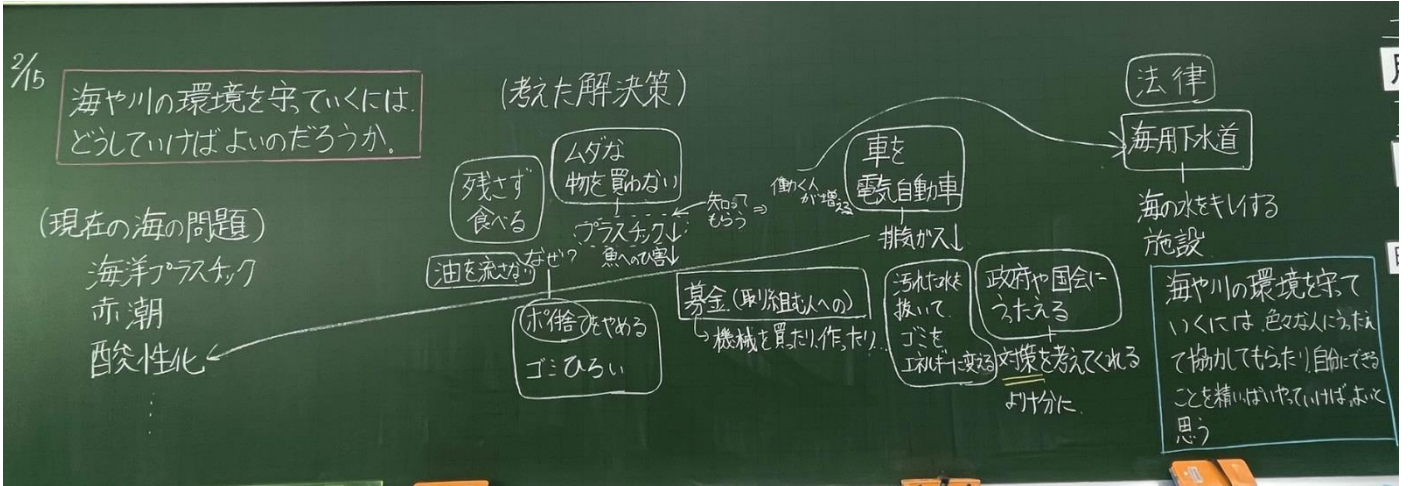 2/15
海や川の環境を守っていくには、
どうしていけばよいのだろうか。
(現在の海の問題)
海洋プラスチック
赤潮
酸性化
⋮
(考えた解決策)
残さず
食べる
油を流さない
なぜ?
ムダな
物を買わない
プラスチック↓
魚への害↓
ポイ捨てをやめる
ゴミひろい
知って
もらう
⇒
働く人
が増える
募金(取り組む人への)
→機械を買ったり、作ったり…
車を
電気自動車
排気ガス↓
汚れた水を
抜いて
ゴミを
エネルギーに変える
政府や国会に
うったえる
対策を考えてくれる
より十分に
法律
海用下水道
海の水をキレイする
施設
海や川の環境を守って
いくには、色々な人にうったえ
て協力してもらったり、自分にできる
ことを精いっぱいやっていけば、よいと
思う